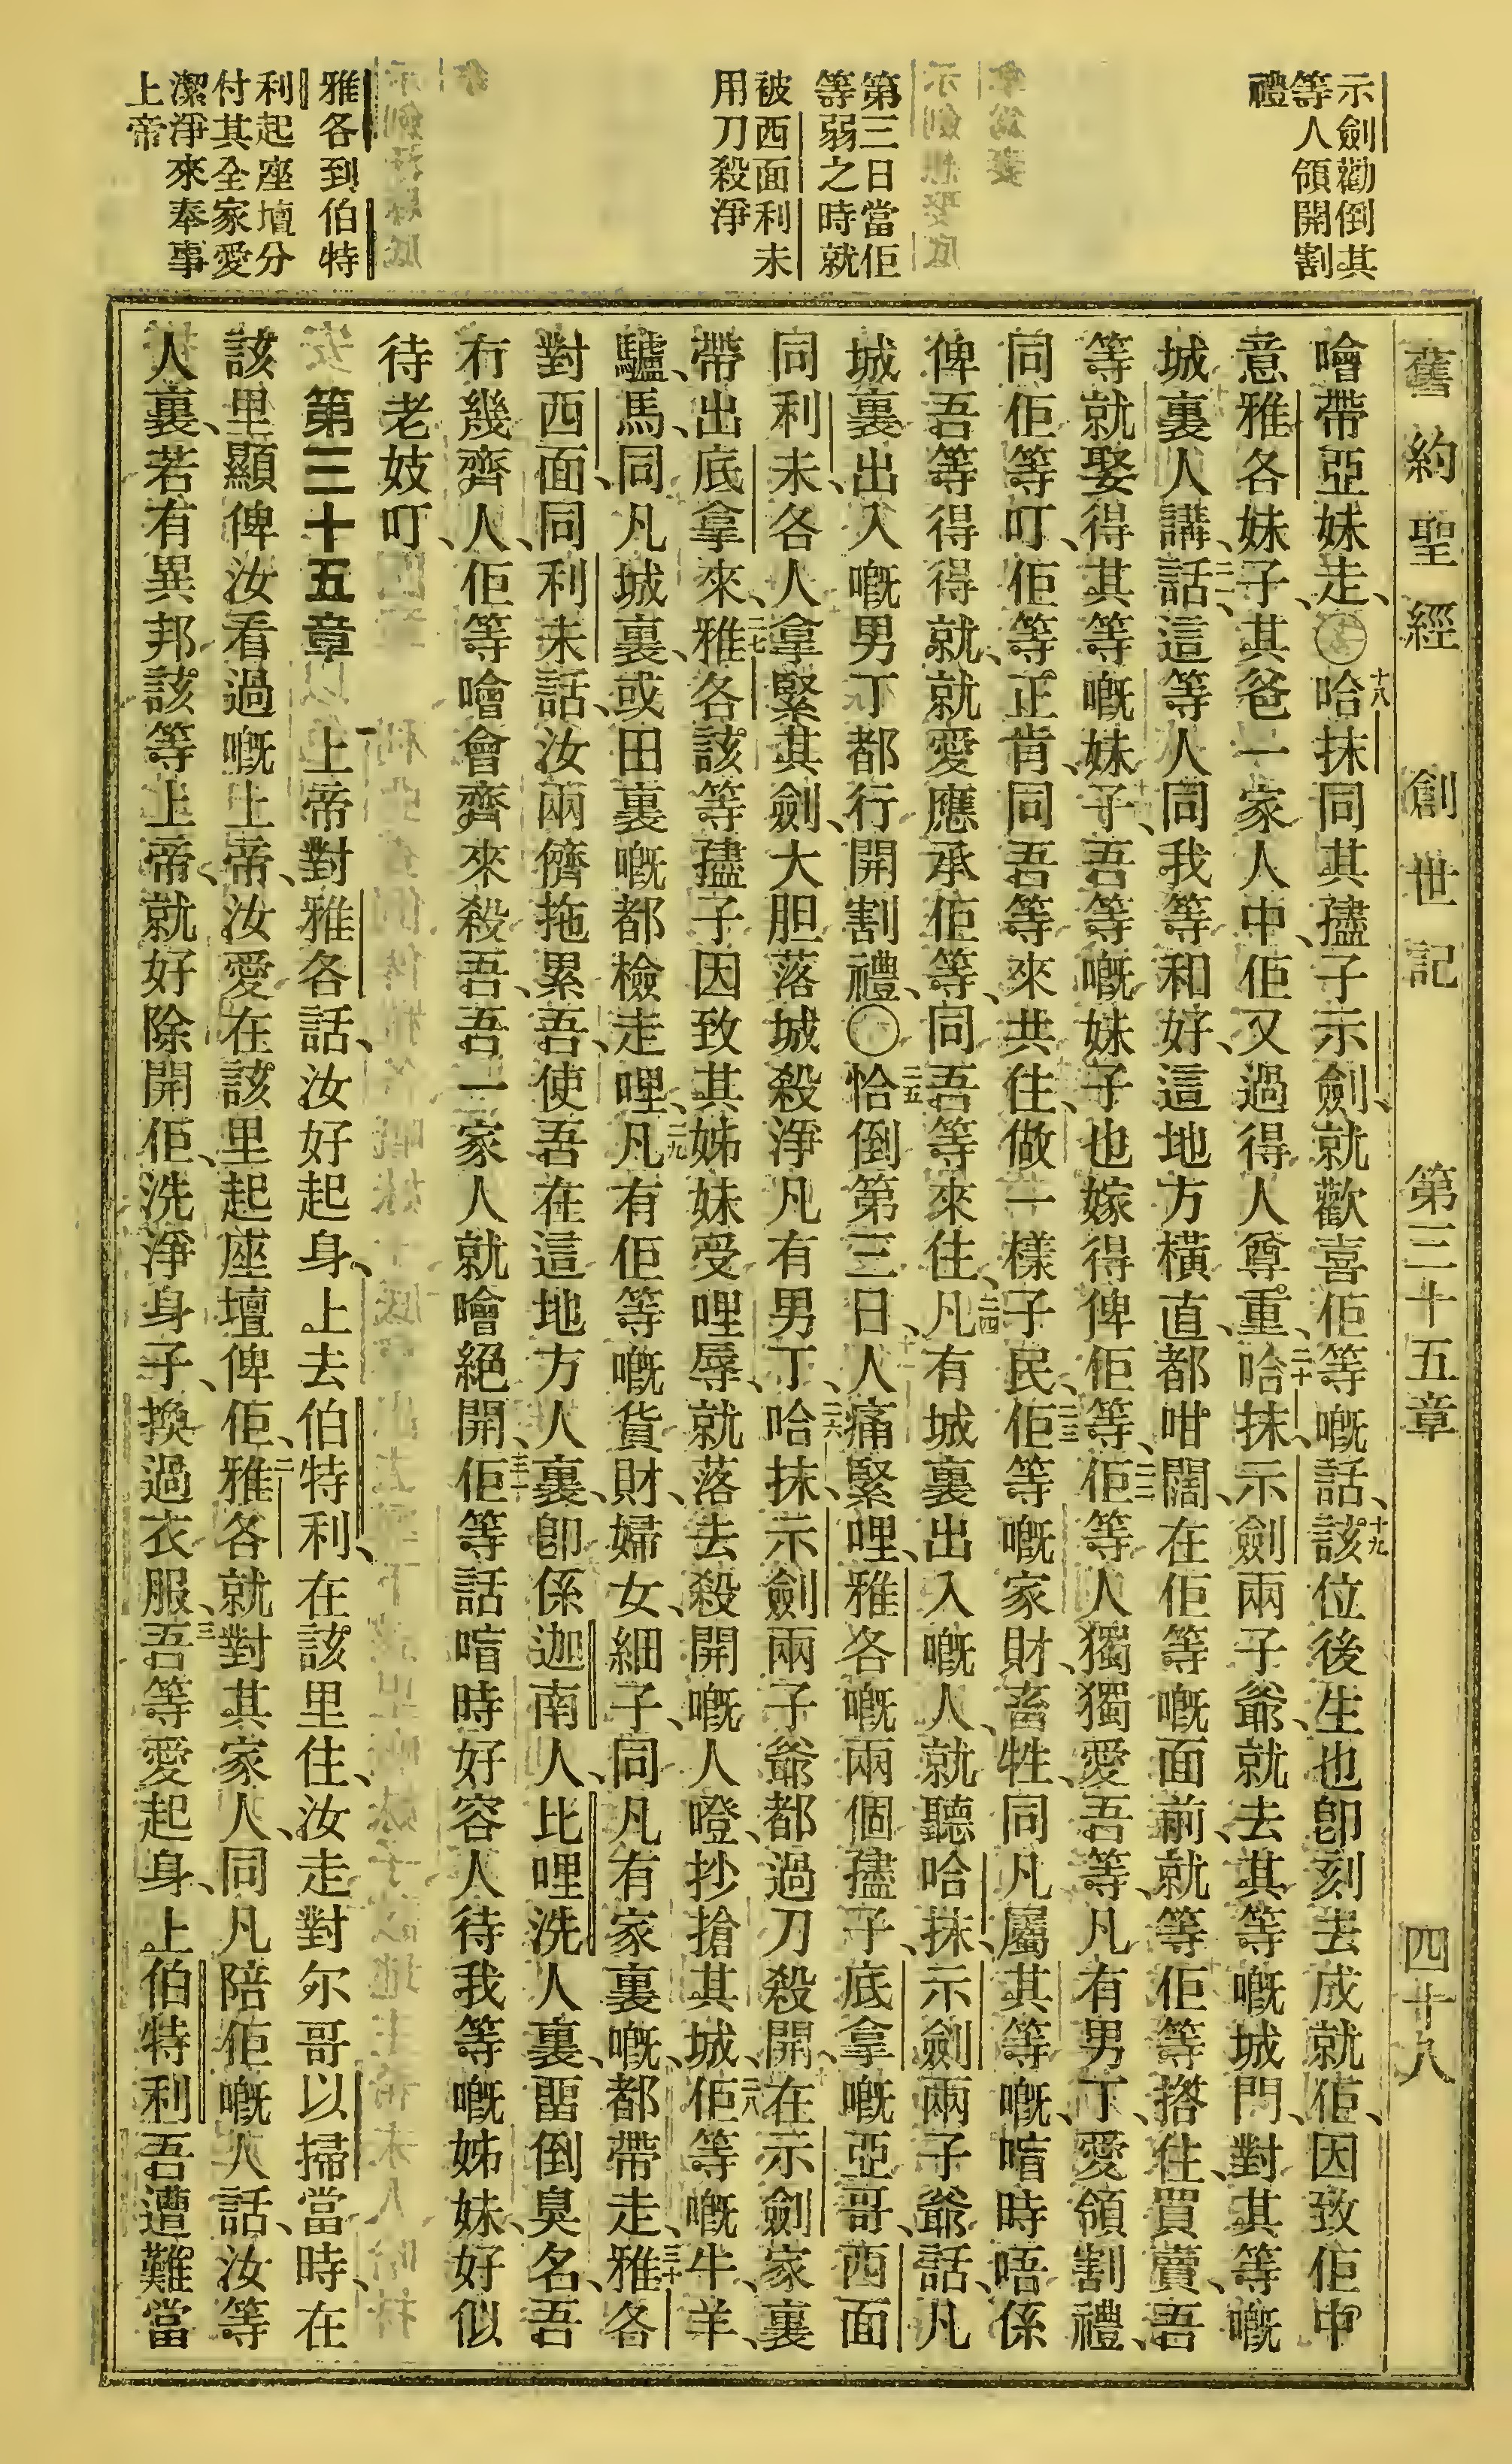 舊約聖經 創世記 第三十五章 四十八
示劍勸倒其
等人領開割
禮
第三日當佢
等弱之時就
被西面利未
用刀殺淨
雅各到伯特
利起座壇分
付其全家愛
潔淨來奉事
上帝
噲帶亞妹走、○十八哈抹同其孻子示劍、就歡喜佢等嘅話、十九該位後生也卽刻去成就佢、因致佢中
意雅各妹子、其爸一家人中、佢又過得人尊重、二十哈抹、示劍兩子爺、就去其等嘅城門、對其等嘅
城裏人講、話、二一這等人同我等和好、這地方橫直、都咁闊、在佢等嘅面前、就等佢等撘住買賣、吾
等就娶得其等嘅妹子、吾等嘅妹子也嫁得俾佢等、二二佢等人獨獨愛吾等、凡有男丁、愛領割禮、
同佢等叮、佢等正肯、同吾等來共住、做一樣子民、二三佢等嘅家財、畜牲、同凡屬其等嘅、喑時唔係
俾吾等得得就、就愛應承佢等、同吾等來住、二四凡有城裏出入嘅人、就聽哈抹、示劍兩子爺話、凡
城裏出入嘅男丁都行開割禮、○二五恰倒第三日、人痛緊哩、雅各嘅兩個孻子、底拿嘅亞哥、西面
同利未、各人拿緊其劍、大胆落城殺淨凡有男丁、二六哈抹、示劍兩子爺都過刀殺開、在示劍家裏
帶出底拿來、二七雅各該等孻子因致其姊妹受哩辱、就落去殺開嘅人噔、抄搶其城、二八佢等嘅牛、羊、
驢、馬、同凡城裏、或田裏嘅都檢走哩、二九凡有佢等嘅貨財、婦女、細子、同凡有家裏嘅、都帶走、三十雅各
對西面、同利未話、汝兩儕拖累吾、使吾在這地方人裏、卽係迦南人、比哩洗人裏、畱倒臭名、吾
冇幾齊人、佢等噲會齊來殺吾、吾一家人就噲絕開、三一佢等話、喑時好容人待我等嘅姊妹、好似
待老妓叮、
第三十五章 一上帝對雅各話、汝好起身、上去伯特利、在該里住、汝走對尓哥以掃當時、在
該里顯俾汝看過嘅上帝、汝愛在該里起座壇俾佢、二雅各就對其家人、同凡陪佢嘅人話、汝等
人裏、若有異邦該等上帝、就好除開佢、洗淨身子、換過衣服、三吾等愛起身、上伯特利、吾遭難當